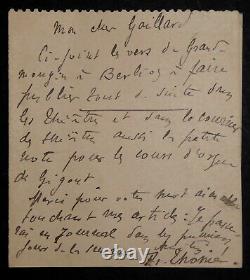 Mon cher Gaillard
Ci-joint les vers de Grand-
mougin à Berlioz à faire
publier tout de suite dans
les Théâtres et dans le courrier
des théâtres aussi la petite
note pour le cours d'orgue
de Gigout
Merci pour votre mot
touchant mes articles. Je passe
au journal dans les premiers
jours de la
www.thefrenchpost.com